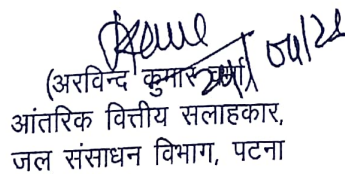 (अरविन्द कुमार वर्मा)
आंतरिक वित्तीय सलाहकार,
जल संसाधन विभाग, पटना